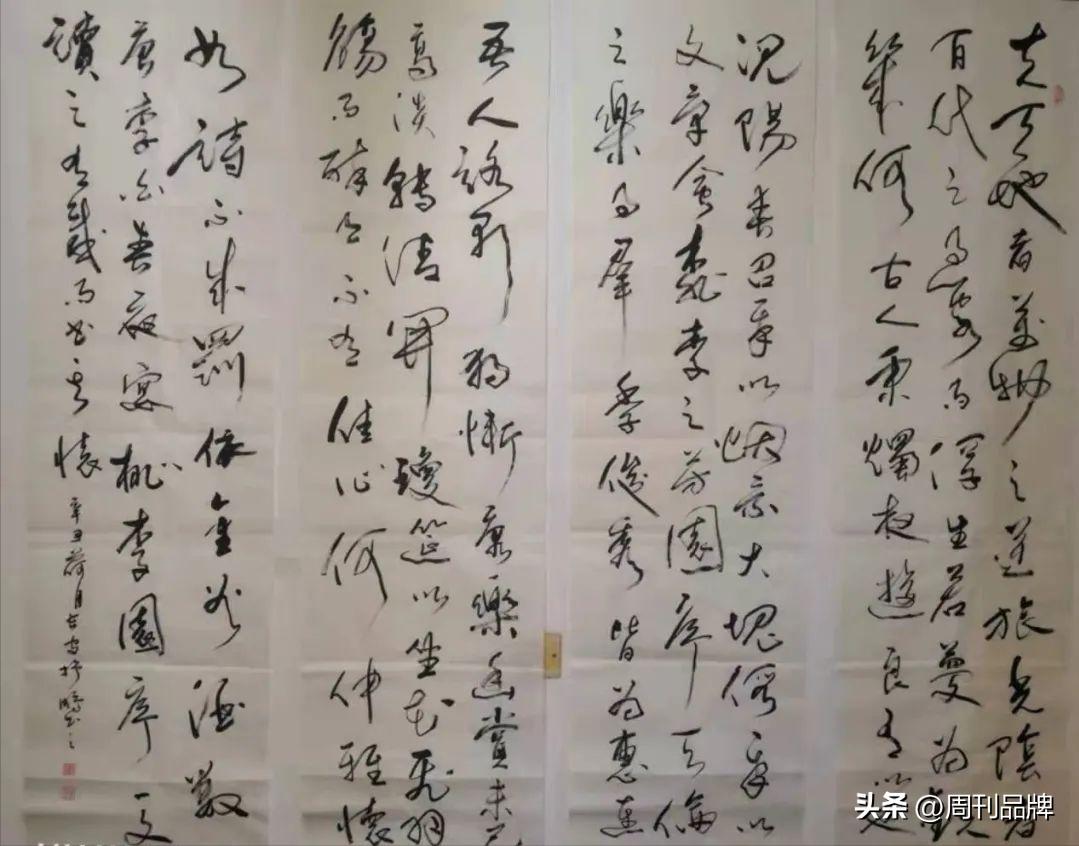 夫天地者萬物之逆旅光陰者
百代之過客而浮生若夢為歡
幾何古人秉燭夜遊良有以也
況陽春召我以烟景大塊假我以
文章會桃李之芳園序天倫
之樂事羣季俊秀皆為惠連
吾人詠歌獨慚康樂幽賞未已
高談轉清開瓊筵以坐花飛羽
觴而醉月不有佳作何伸雅懷
如詩不成罰依金谷酒數
唐李白春夜宴桃李園序一文
讀之有感而書懷
辛丑荷月
头条 @周刊品牌